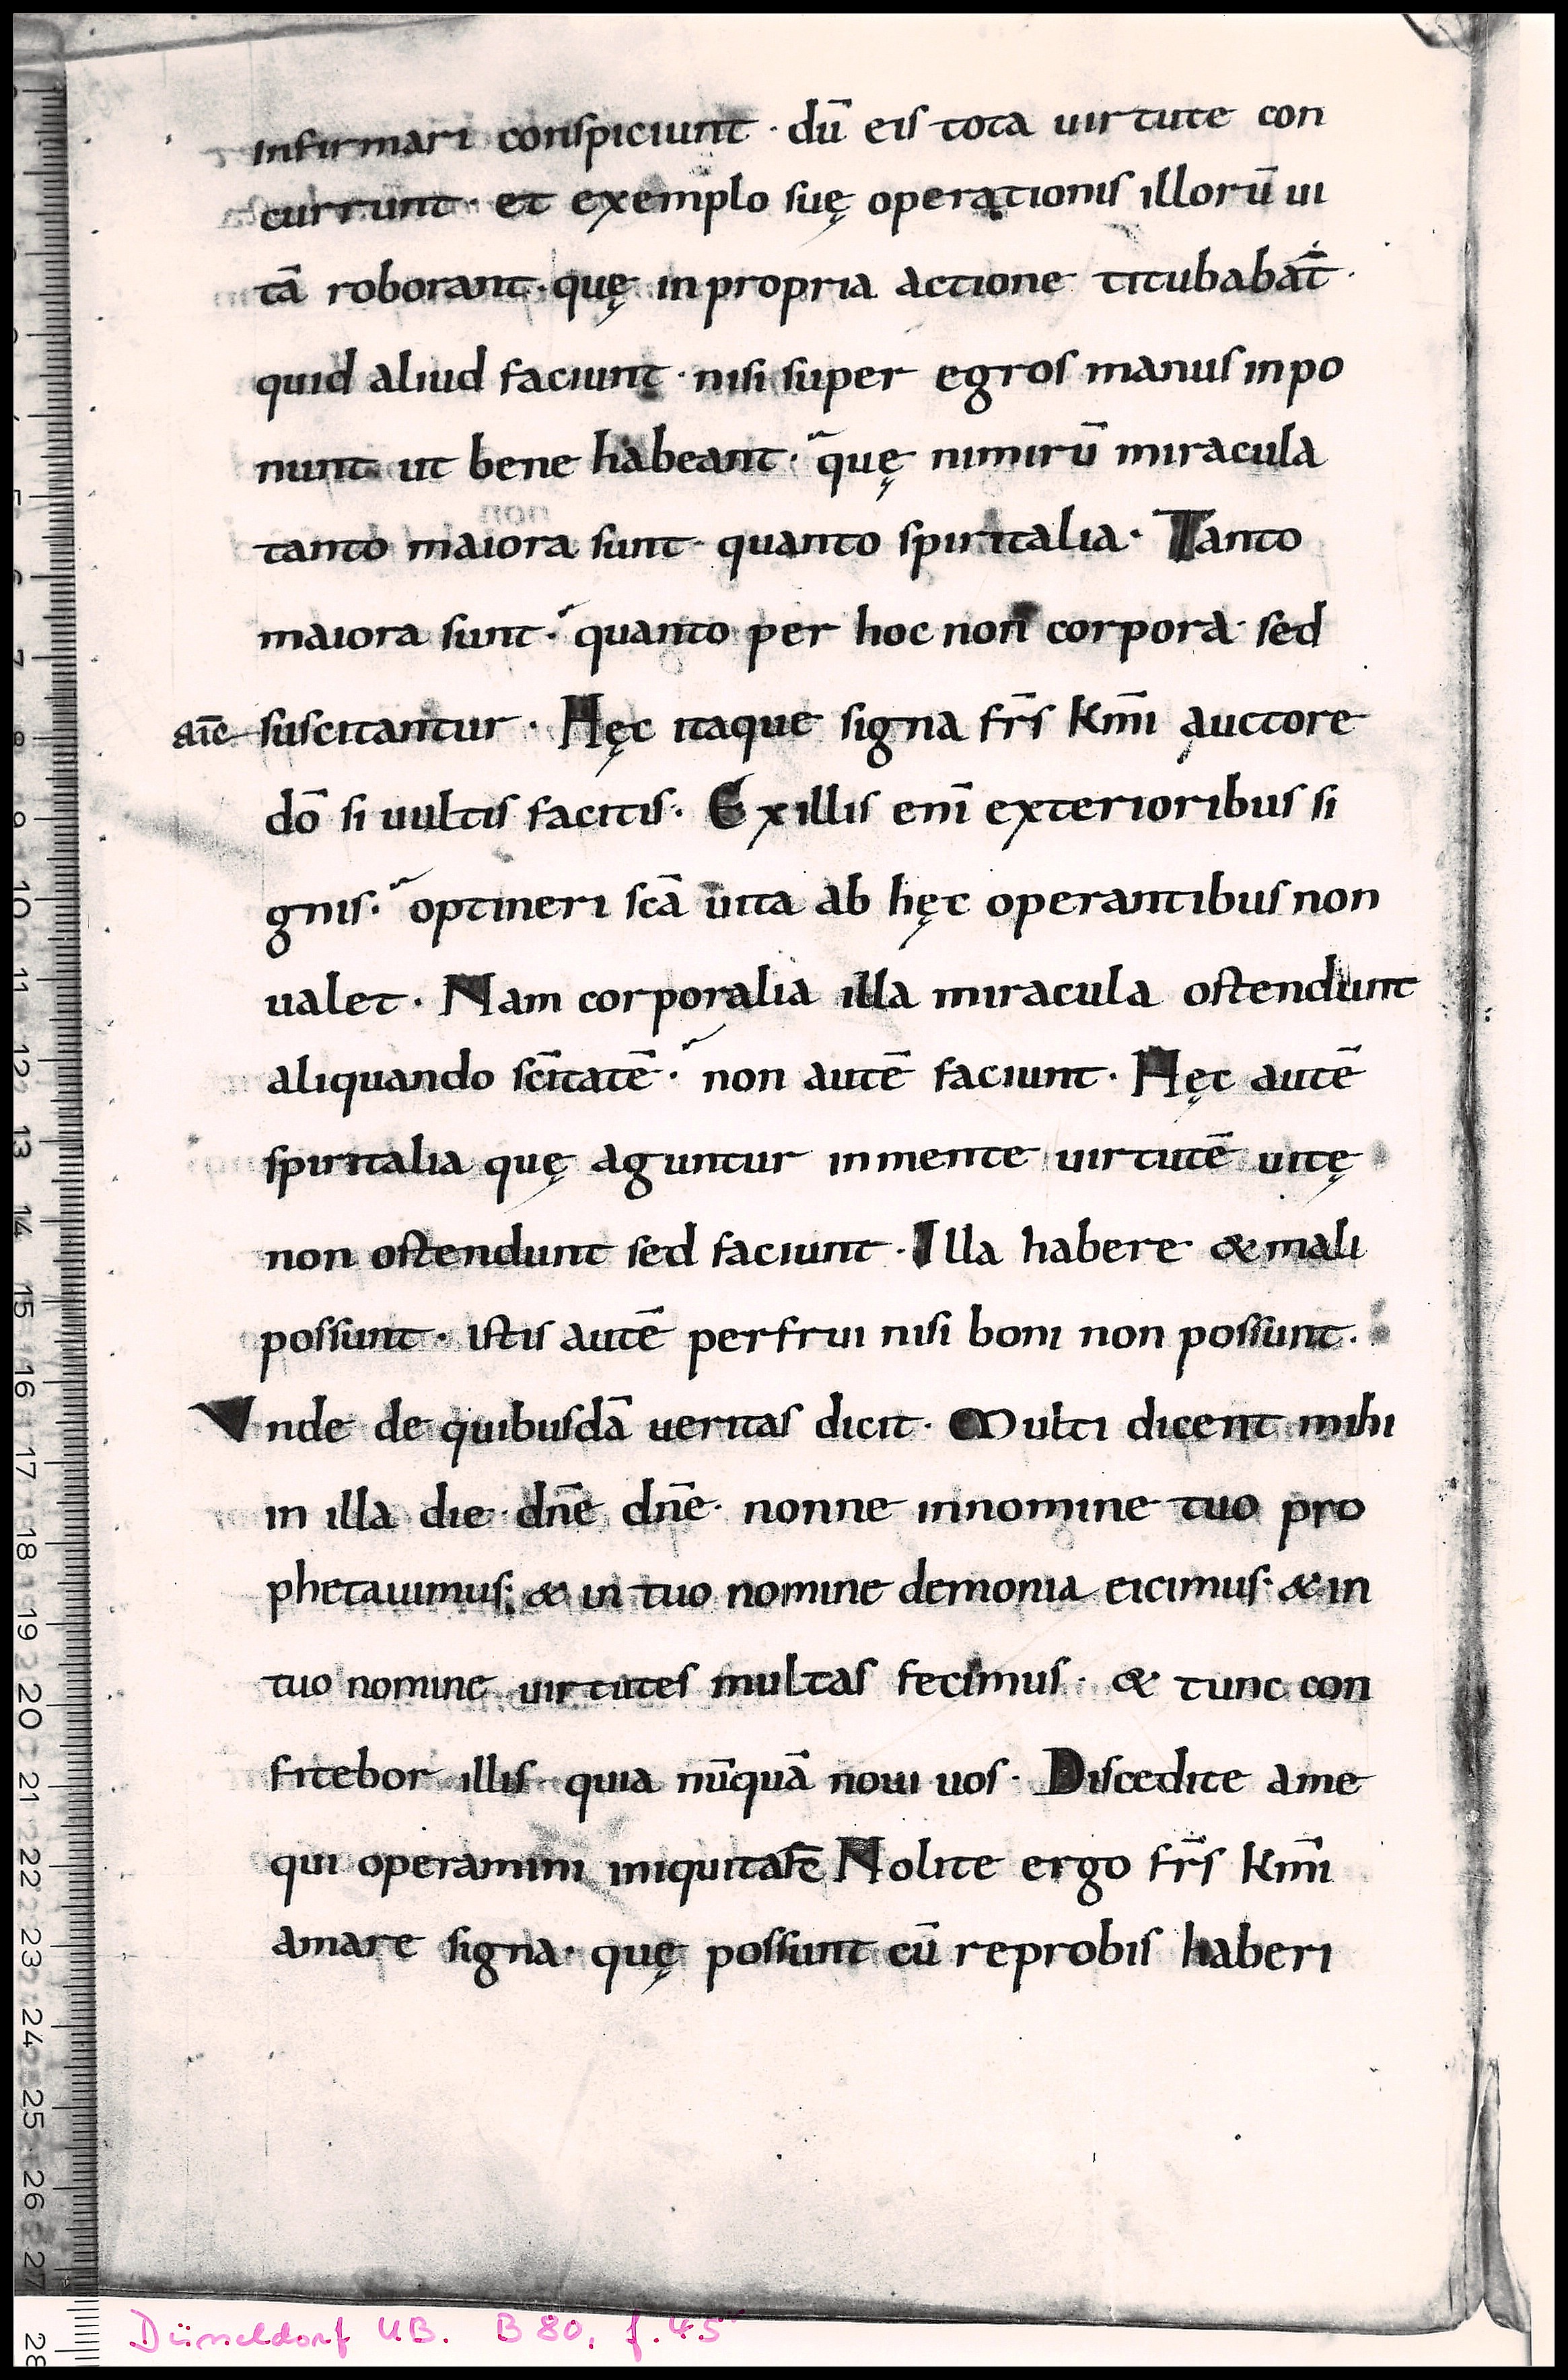 infirmari conspiciunt · dū eis tota uirtute con
currunt · et exemplo suę operationis illorū ui
tā roborant · quę in propria actione titubabat̄ ·
quid aliud faciunt · nisi super egros manus inpo
nunt ut bene habeant · quę nimirū miracula
tanto maiora sunt · quanto spiritalia · Tanto
maiora sunt · quanto per hoc non corpora · sed
aīe suscitantur · Hęc itaque signa fr̄s km̄i auctore
dō si uultis facitis · Ex illis enī exterioribus si
gnis · optineri scā uita ab hęc operantibus non
ualet · Nam corporalia illa miracula ostendunt
aliquando sc̄itatē · non autē faciunt · Hęc autē
spiritalia quę aguntur in mente uirtutē uitę
non ostendunt sed faciunt · Illa habere & mali
possunt · istis autē perfrui nisi boni non possunt ·
Vnde de quibusdā ueritas dicit · Multi dicent mihi
in illa die · dn̄e dn̄e · nonne in nomine tuo pro
phetauimus · & in tuo nomine demonia eicimus · & in
tuo nomine uirtutes multas fecimus · & tunc con
fitebor illis · quia nūquā noui uos · Discedite a me
qui operamini iniquitatē Nolite ergo fr̄s km̄i
amare signa · quę possunt cū reprobis haberi
Düsseldorf UB. B 80, f. 45ʳ
5
6
7
8
9
10
11
12
13
14
15
16
17
18
19
20
21
22
23
24
25
26
27
28